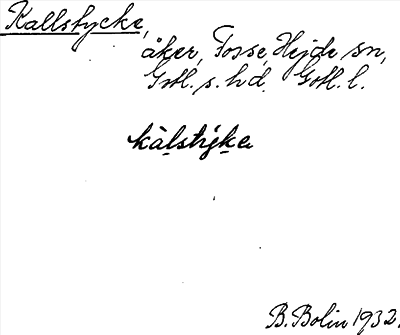 Kallstycke,
åker, Tosse, Hejde sn,
Gotl. s. hd. Gotl. l.
kàlstýke
B. Bolin 1932.